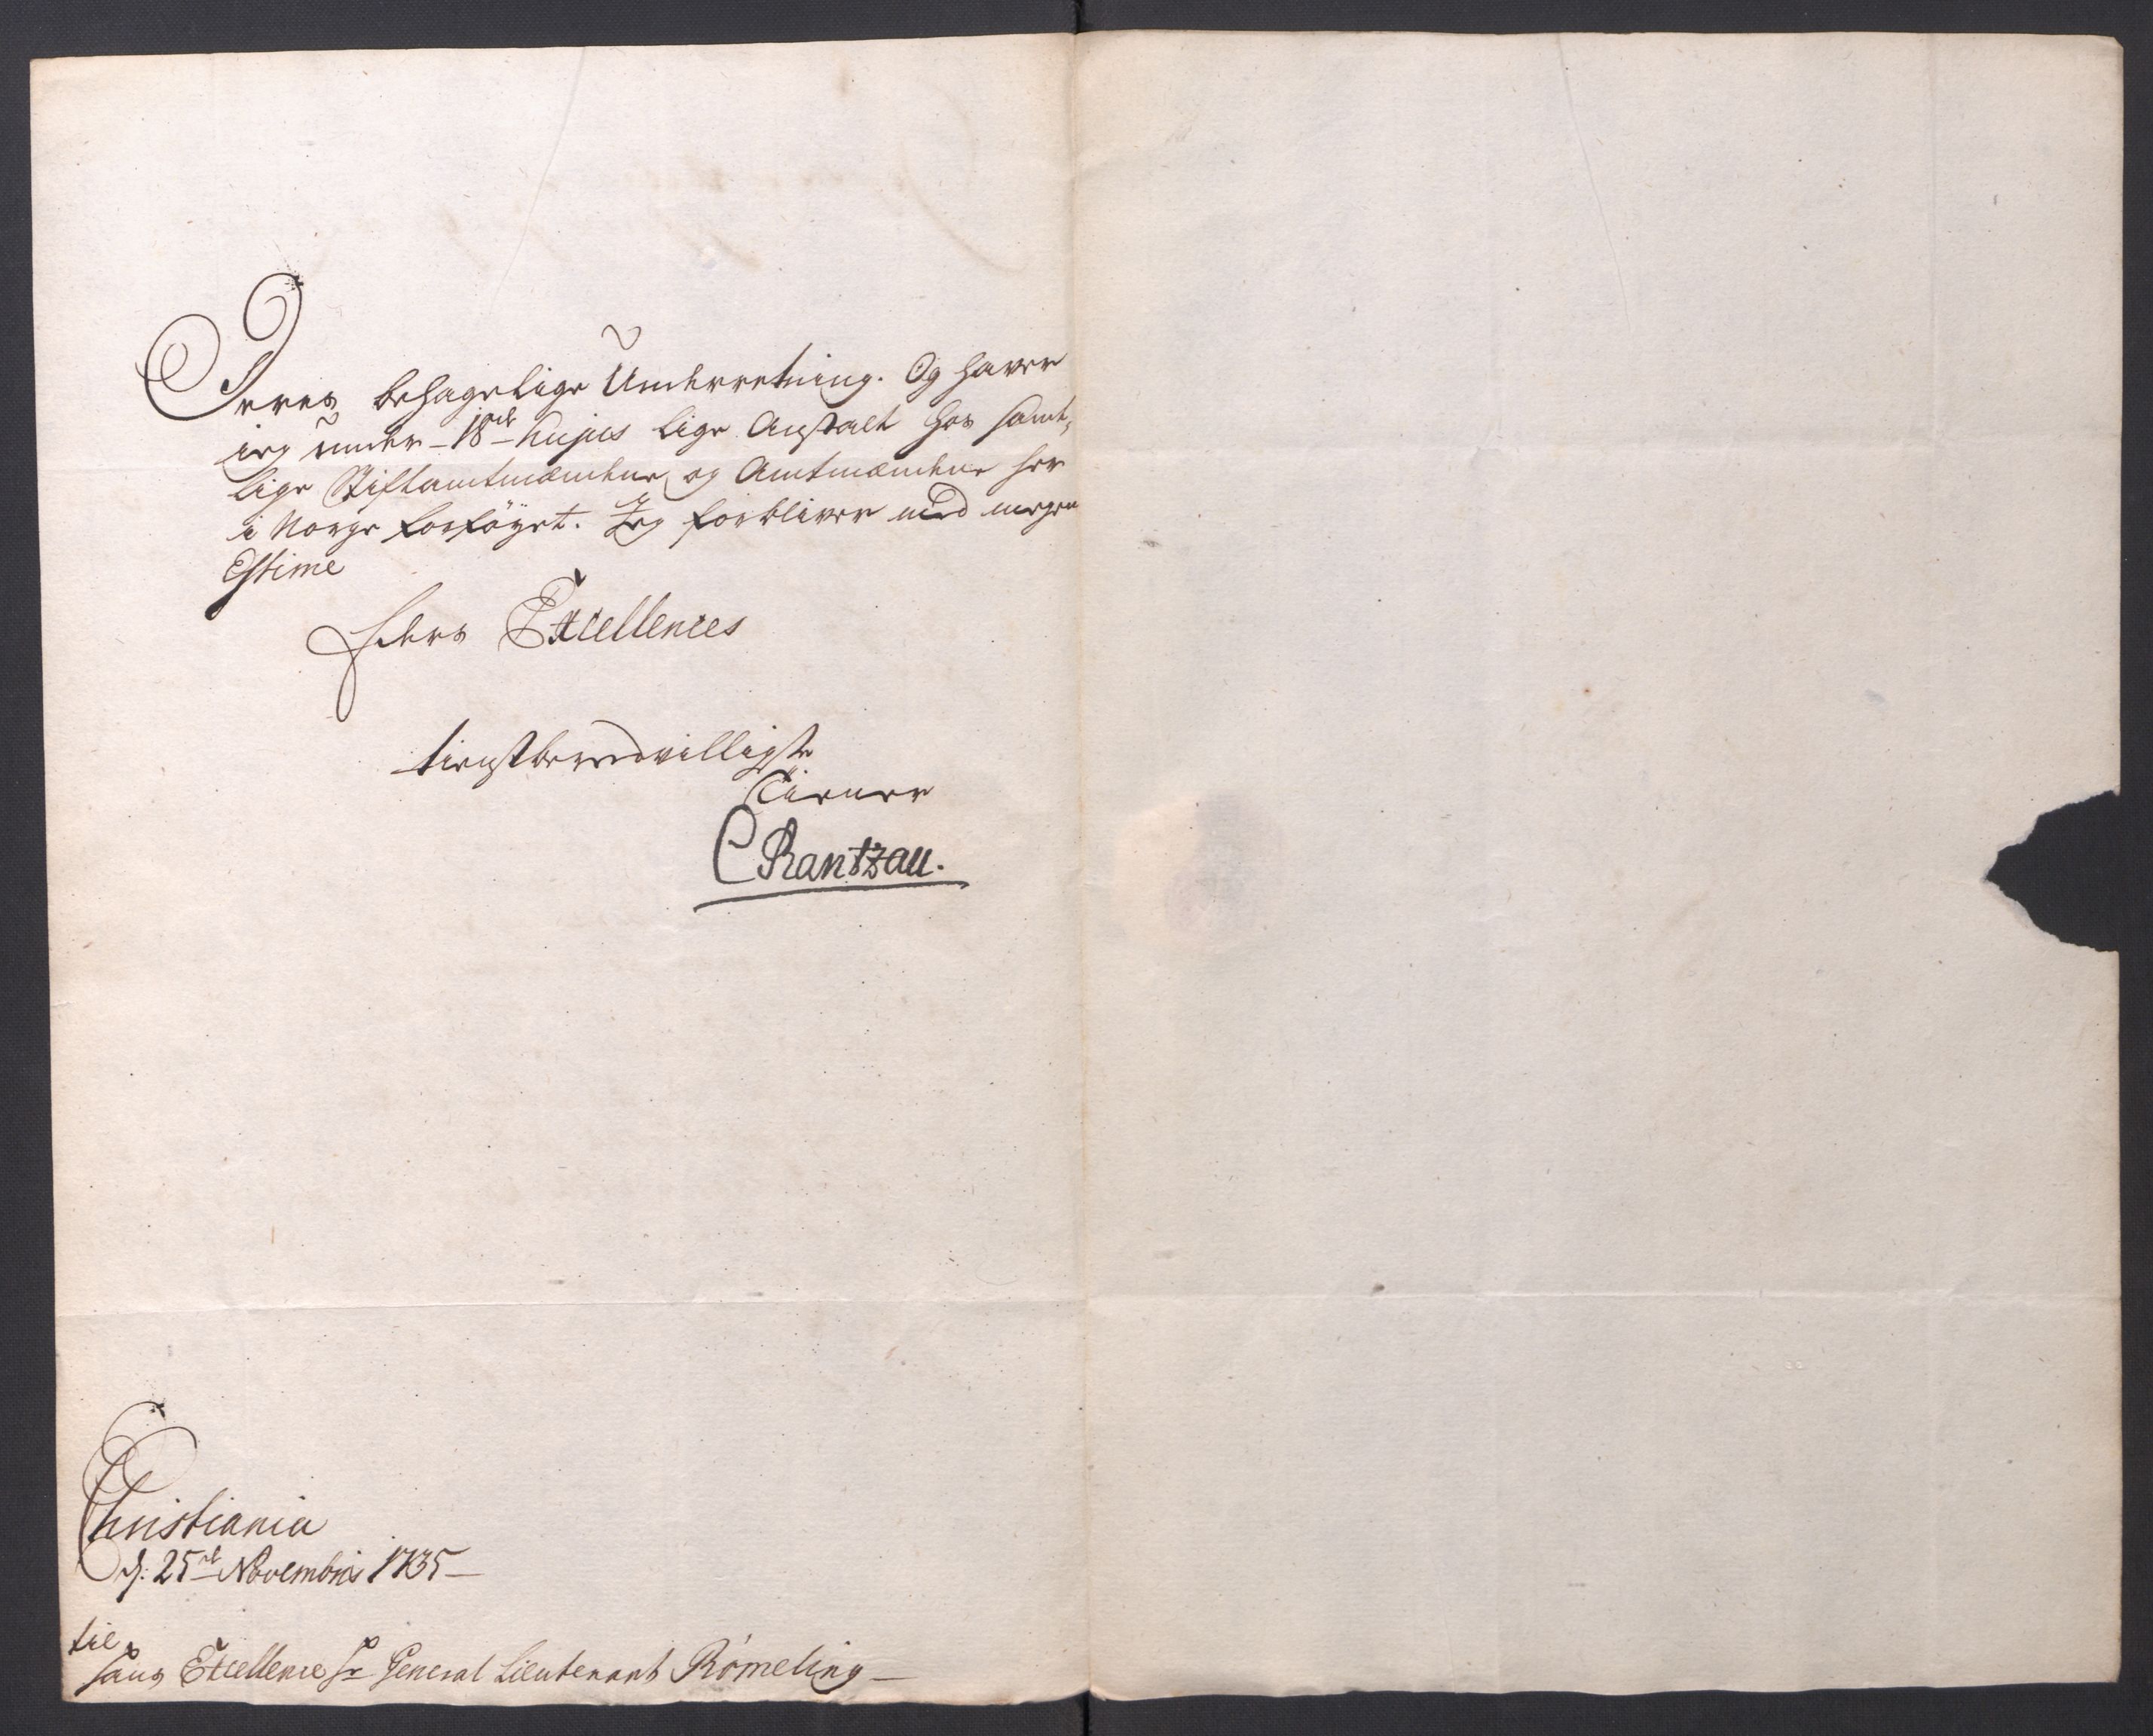 Deres behagelige Underretning. Og haver
ieg under 18de hujus lige Anstalt hos samt,
lige Stiftamtmændene og Amtmændene her
i Norge forføyet. Jeg forbliver med megen
Estime
Eders Excellences
tienstberedvilligste
Tiener
CRantzau.
Christiania
d. 25de Novembris 1735
til
Hans Excellence Hr General Lieutenant Rømeling